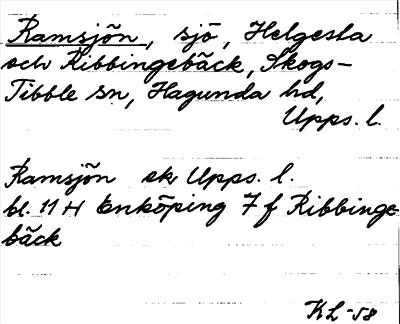 Ramsjön, sjö, Helgesta
och Ribbingebäck, Skogs-
Tibble sn, Hagunda hd,
Upps. l.
Ramsjön ek Upps. l.
bl. 11 H Enköping 7 f Ribbinge-
bäck
KL -58